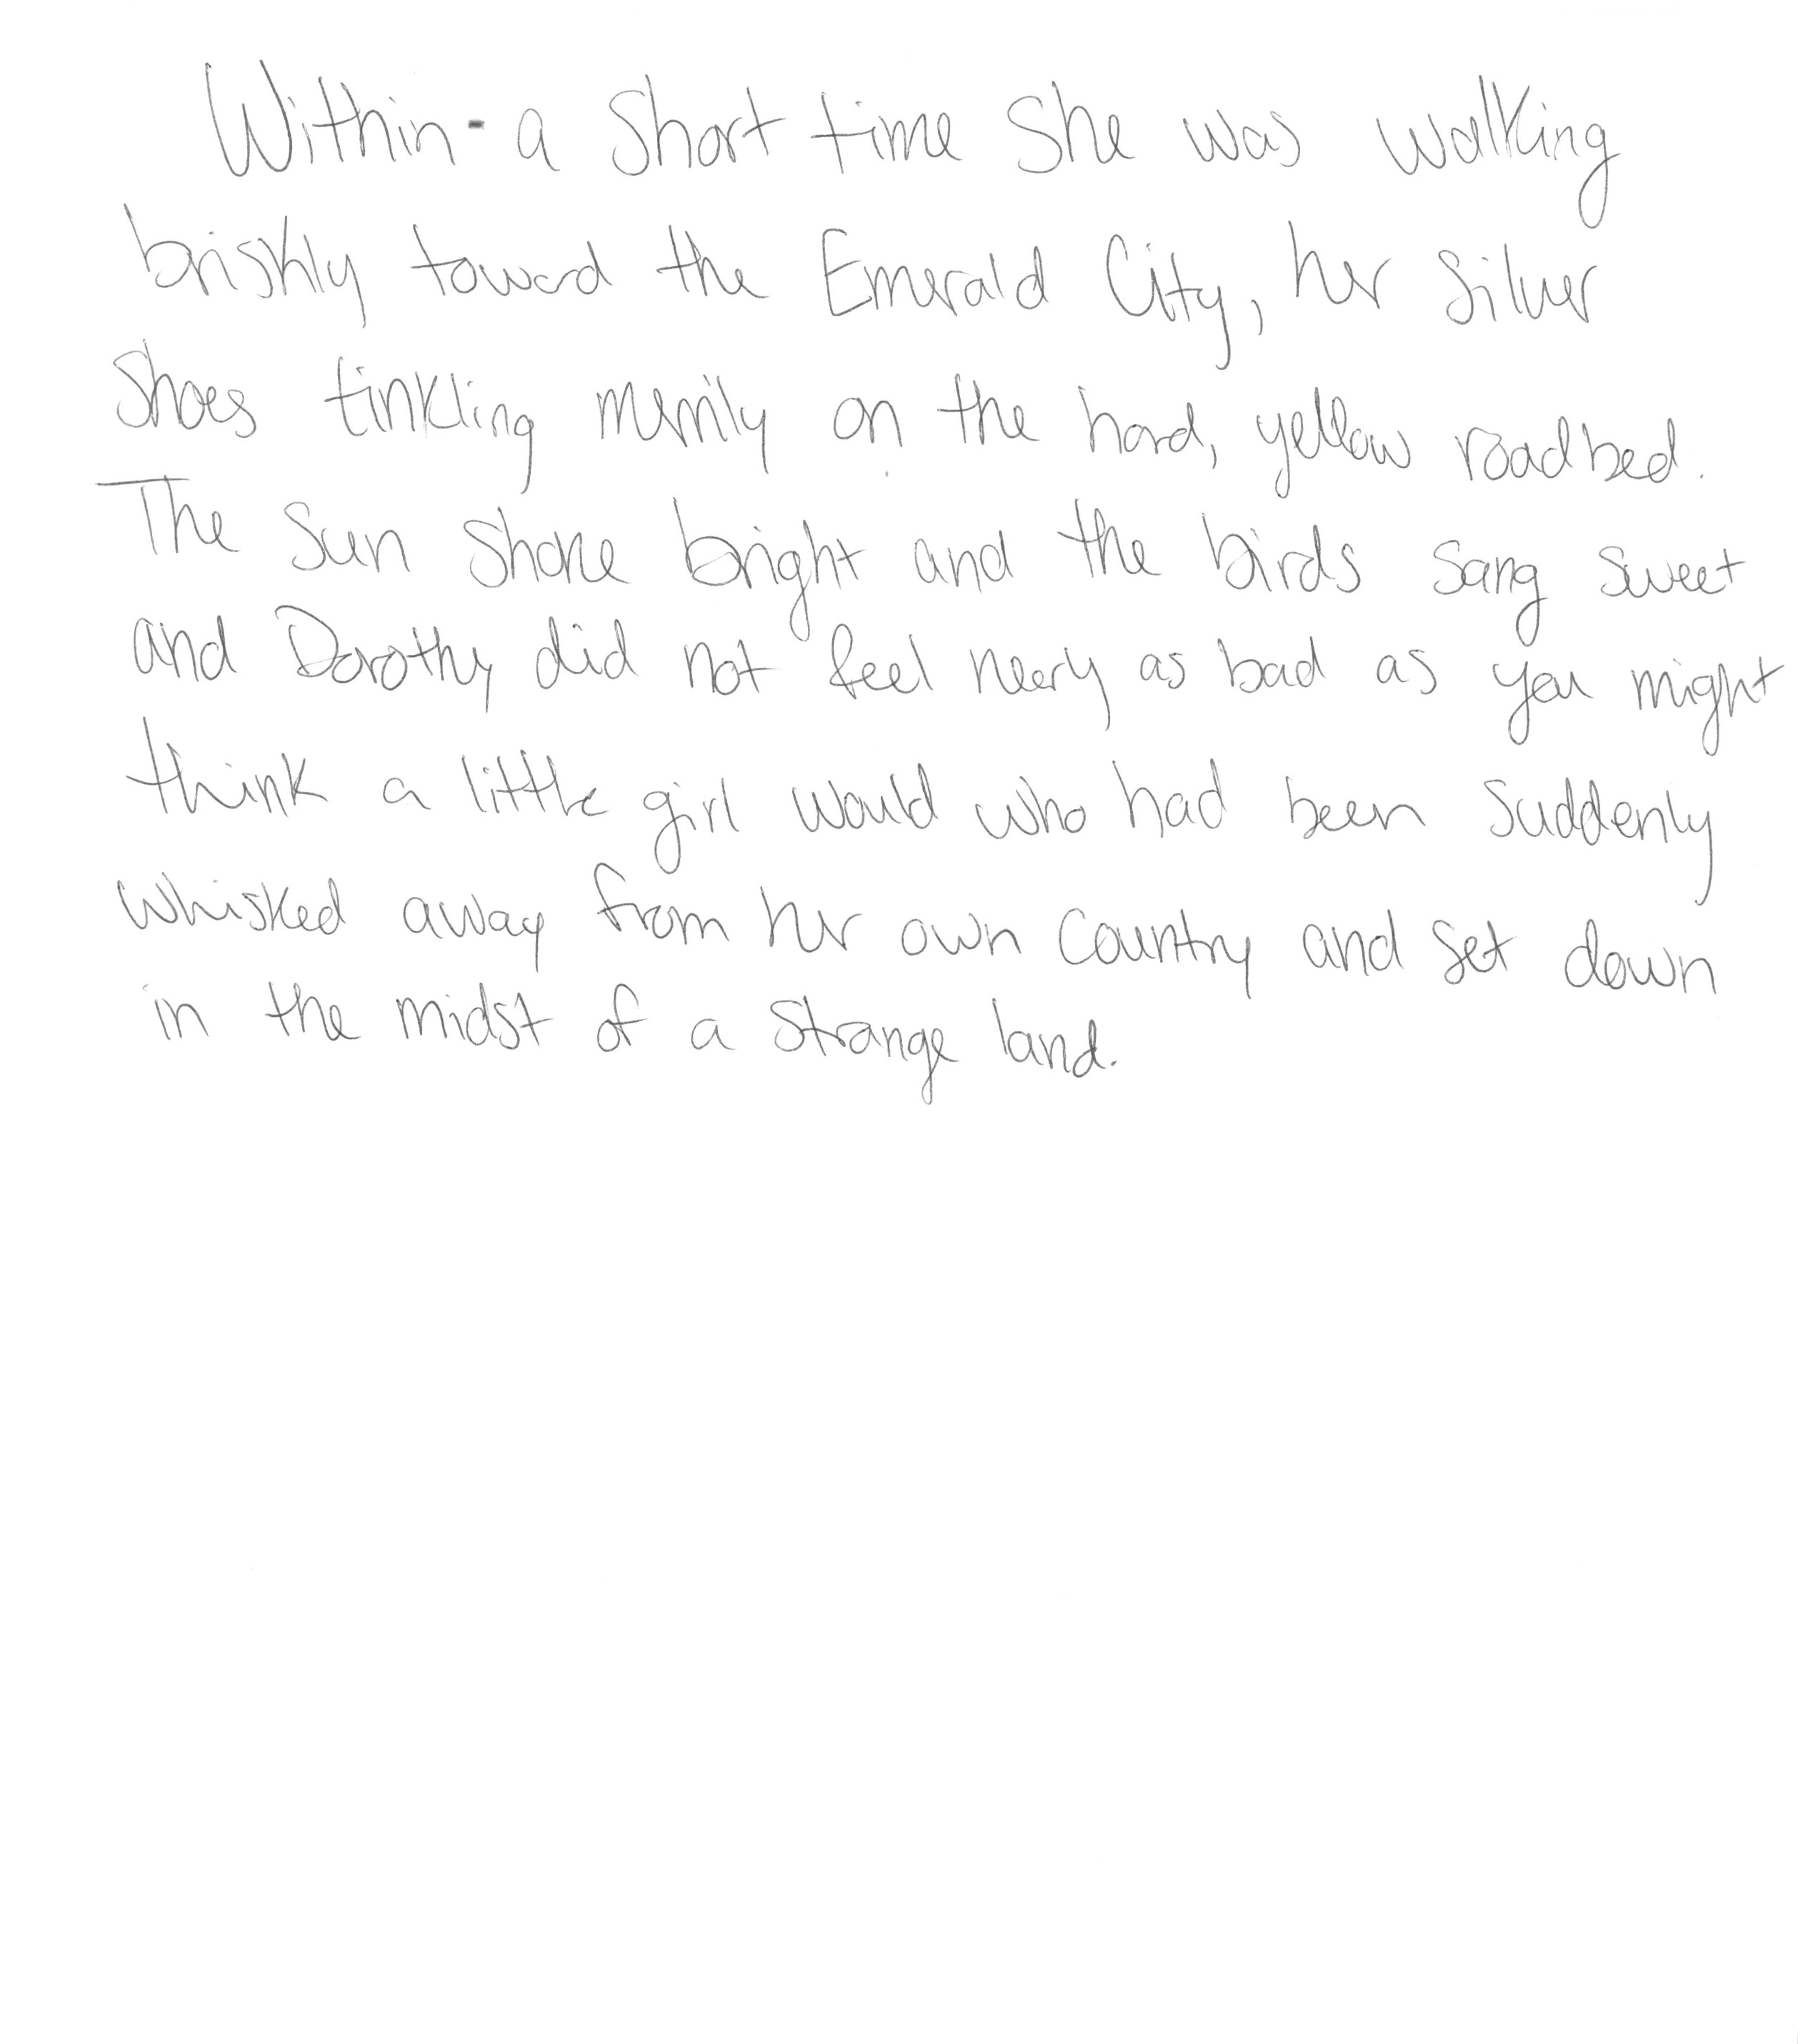 Within - a short time she was walking
briskly toward the Emerald City, her Silver
Shoes tinkling merrily on the hard, yellow roadbed.
The sun shone bright and the birds sang sweet
and Dorothy did not feel neery as bad as you might
think a little girl would who had been suddenly
whisked away from her own country and set down
in the midst of a strange land.